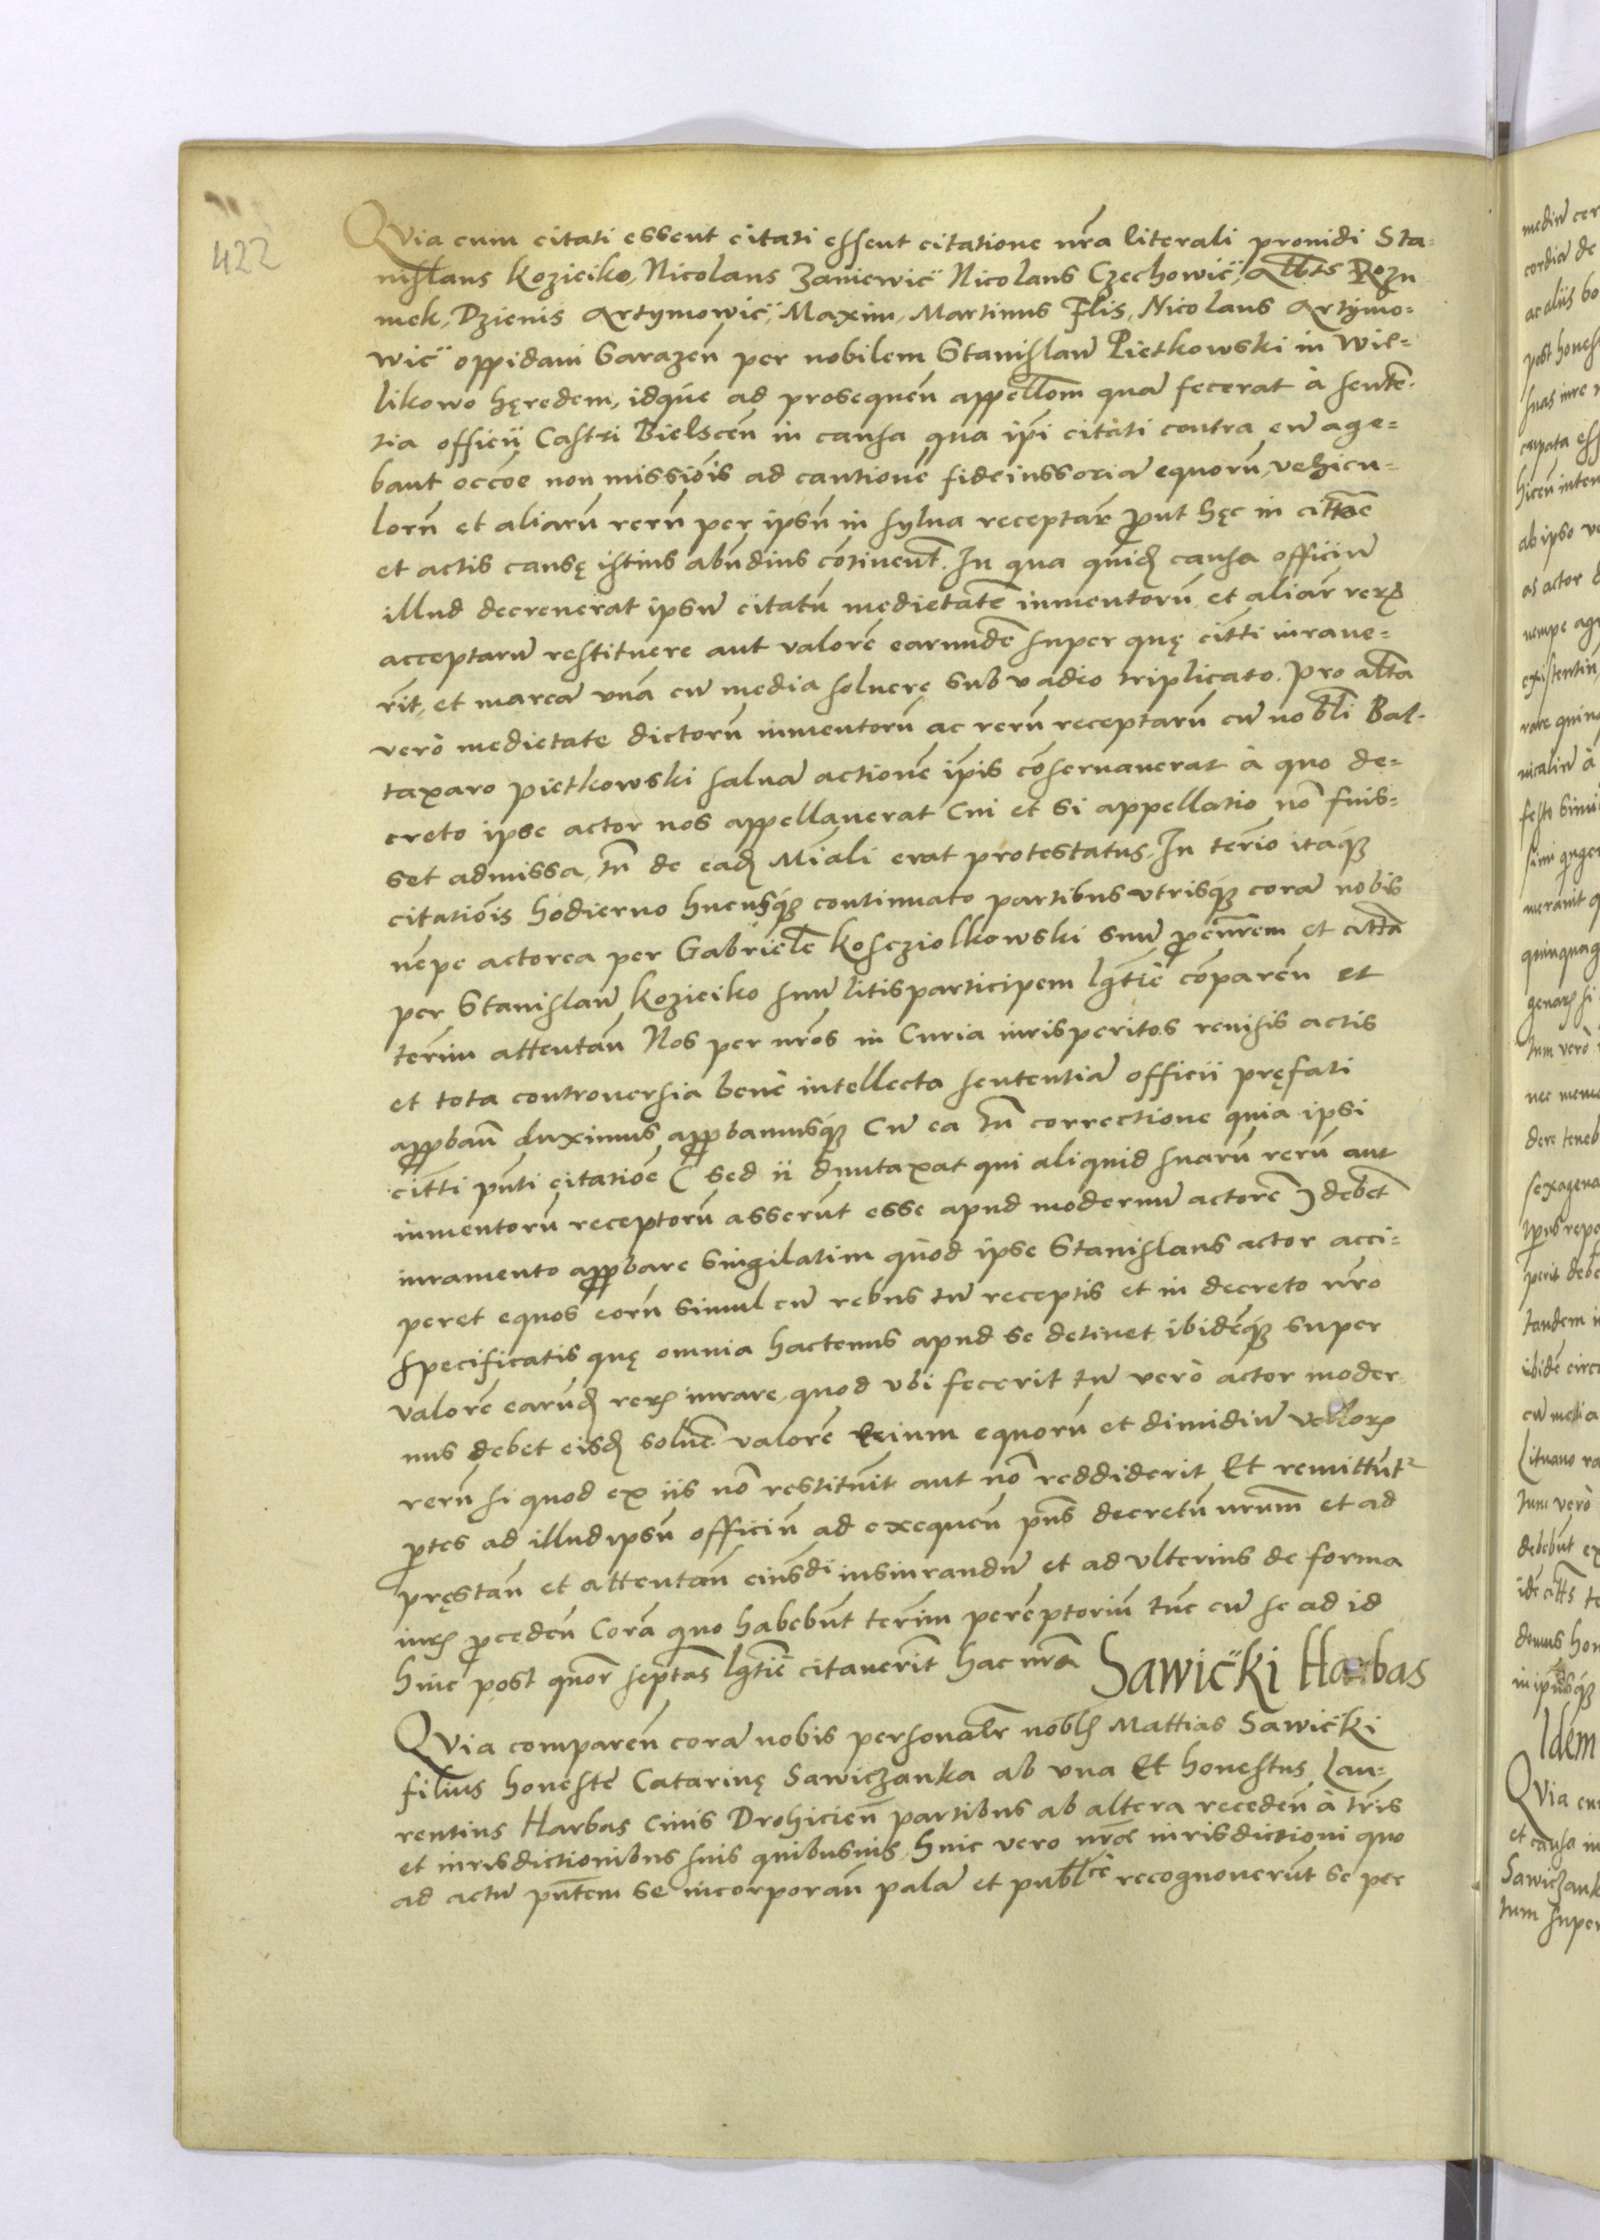 422
Quia cum citati essent citati essent citatione nr̃a literali prouidi Sta-
nislaus Kozieiko, Nicolaus Zaniewic̈ Nicolaus Czechowic̈, Albts Rozu
mek, Dzienis Artymowic̈, Maxim, Martinus Flis, Nicolaus Artymo-
wic̈ oppidani Sarazen̄ per nobilem Stanislau̅ Pietkowski in Wie-
likowo hęredem, idq́ue ad prosequen̄ appellõm qua̅ fecerat à senten̅-
tia officii Castri Bielscen̄ in causa qua ip̃i citati contra eu̅ age-
bant occõe non missiõis ad cautione̅ fideiussoria̅ equoru̅, vehicu-
loru̅ et aliaru̅ reru̅ per ipsu̅ in sylua receptar̄ ꝓut hęc in citt̃oe
et actis causę istius abu̅dius co̅tinent̃. In qua quid̨ causa officiu̅
illud decreuerat ipsu̅ citatu̅ medietate̅ iumentoru̅ et aliar̃ rerꝝ
acceptaru̅ restituere aut valore̅ earunde̅ super quę citt̃i iuraue-
rit̃, et marca̅ vna̅ cu̅ media soluere sub vadio triplicato. Pro alt̃a
verò medietate dictoru̅ iumentoru̅ ac reru̅ receptaru̅ cu̅ nobli Bal-
taxaro Pietkowski salua̅ actione̅ ip̃is co̅seruauerat à quo de-
creto ipse actor nos appellauerat Cui et si appellatio no̅ fuis-
set admissa, tn̄ de ead̨ Miali erat protestatus. In ter̃io itaq́ꝫ
citatiõis hodierno hucusq́ꝫ continuato partibus vtrisq́ꝫ cora̅ nobis
ne̅pe actorea per Gabriele̅ Kosciolkowski suu̅ ꝓcur̃em et citt̃a
per Stanislau̅ Kozieiko suu̅ litis participem lg̃tie̅ co̅paren̄ et
ter̃im attentan̄ Nos per nr̃os in Curia iurisperitos reuisis actis
et tota controuersia bene intellecta sententia̅ officii pręfati
apꝓban̄ duximus apꝓbamusq́ꝫ Cu̅ ea tn̄ correctione quia ipsi
citt̃i pn̄ti citatiõe ( sed ii duntaxat qui aliquid suaru̅ reru̅ aut
iumentoru̅ receptoru̅ asseru̅t esse apud modernu̅ actore̅ ) debe̅t
iuramento apꝓbare singilatim quod ipse Stanislaus actor acci-
peret equos eoru̅ simul cu̅ rebus tu̅ receptis et in decreto nr̃o
specificatis quę omnia hactenus apud se detinet, ibide̅q́ꝫ super
valore̅ earu̅d̨ rerꝝ iurare, quod vbi fecerit tu̅ verò actor moder
nus debet eisd̨ solue̅ valore̅ equoru̅ et dimidiu̅
reru̅ si quod ex iis no̅ restituit aut no̅ reddiderit Et remittu̅tr
ꝑtes ad illud ipsu̅ officiu̅ ad exequen̄ pn̄s decretu̅ nrum̃ et ad
pręstan̄ et attentan̄ eiusdi iusiurandu̅ et ad vlterius de forma
iurꝝ ꝓceden̄ Cora̅ quo habebu̅t ter̃im pere̅ptoriu̅ tu̅c cu̅ se ad id
hinc post quor̃ septas̃ lg̃tie̅ citauerit̃ hac nr̃a Sawic̈ki Harbas
Quia comparen̄ cora̅ nobis personalr̃ noblꝭ Mattias Sawic̈ki
filius honestę Catarinę Sawiczanka ab vna Et honestus Lau-
rentius Harbas Ciuis Drohicien̄ partibus ab altera receden̄ à tr̃ris
et iurisdictionibus suis quibusuis, huic vero nr̃ę iurisdictioni quo
ad actu̅ pn̄tem se incorporan̄ pala̅ et publce recognoueru̅t se per
mediu̅ cer
cordia̅ de
ac aliis bo
post hones
suas iure
ab ipso ve
as actor
nempe ag
nicaliu̅ à
quinquag
tum verò
nec
dere teneb
sexagena
tandem i
ibide̅ circ
cu̅ media
Lituano ra
tum verò
debebu̅t ex
domus hon
Idem
Quia cu
et causa in
Sawiczank
tum super